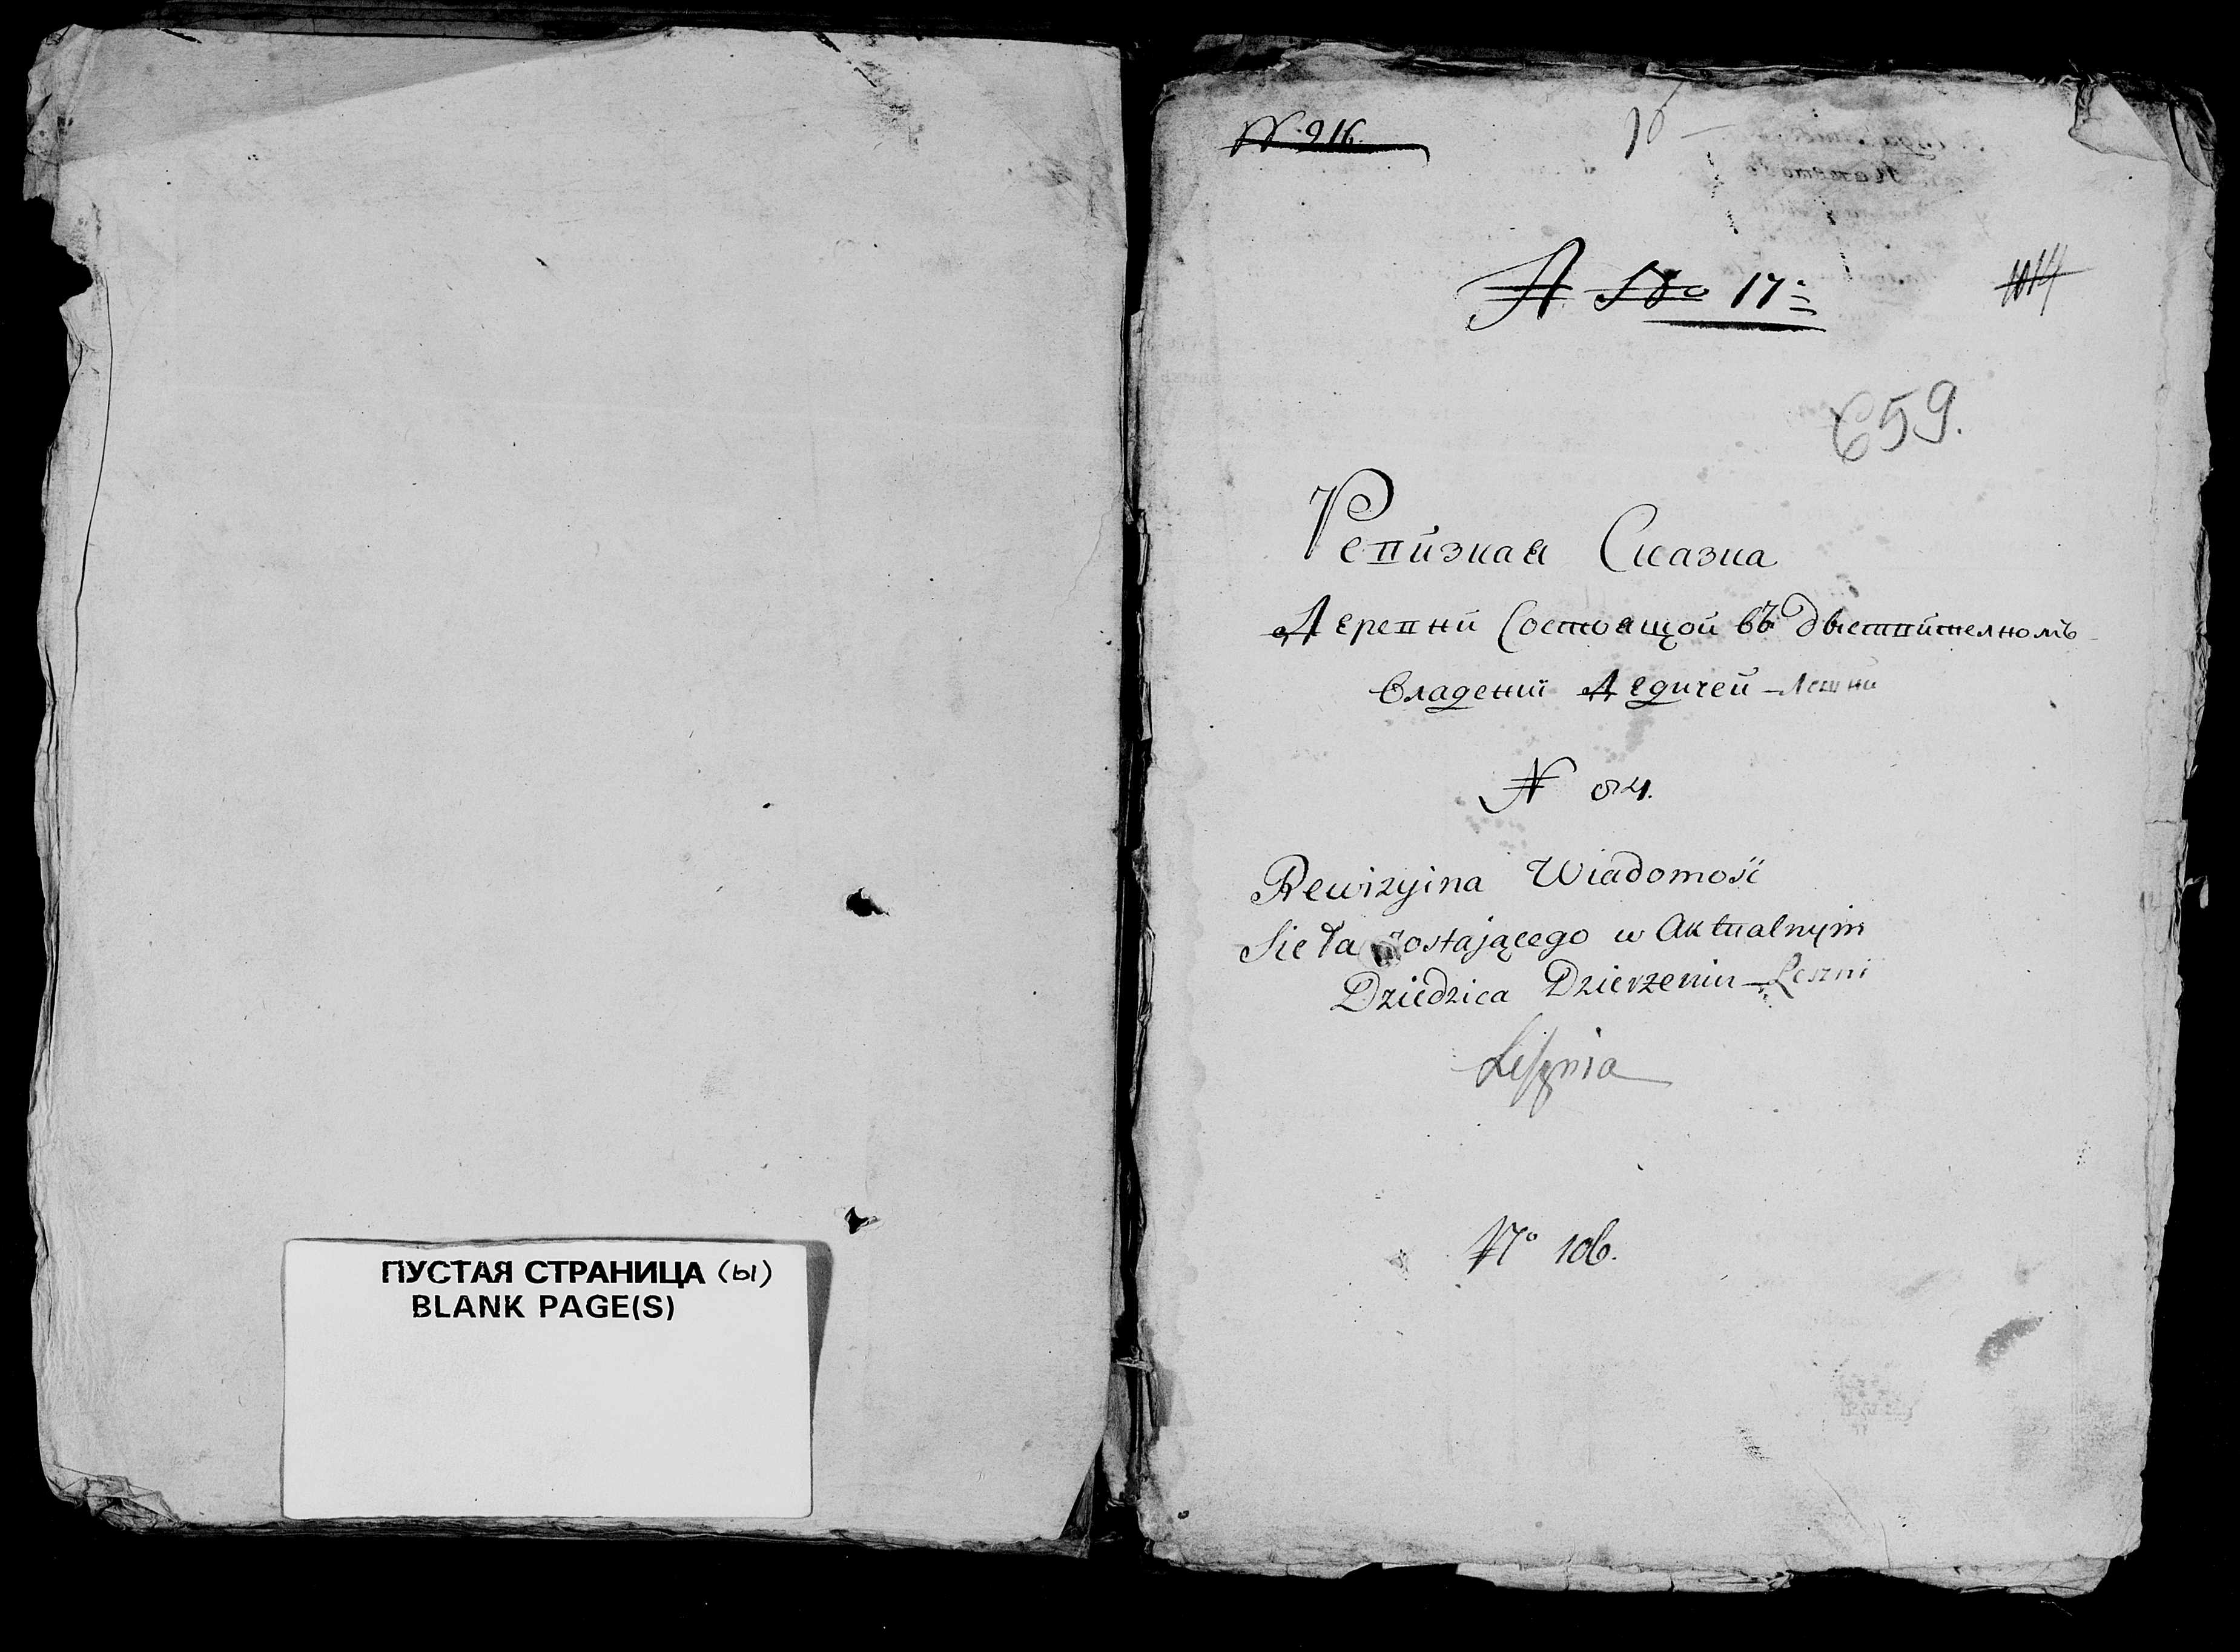 ПУСТАЯ СТРАНИЦА (ы)
BLANK PAGE(S)
N. 216.
16
A No 17
1014
659.
Ревизкая Сказка
Деревни Состоящой въ двиствителномъ
Владении Дедичей Лешни
N 84.
Rewizyina Wiadomość
Sieła zostającego w Aktualnym
Dziedzica Dzierzeniu Leszni
Leſznia
No 106.